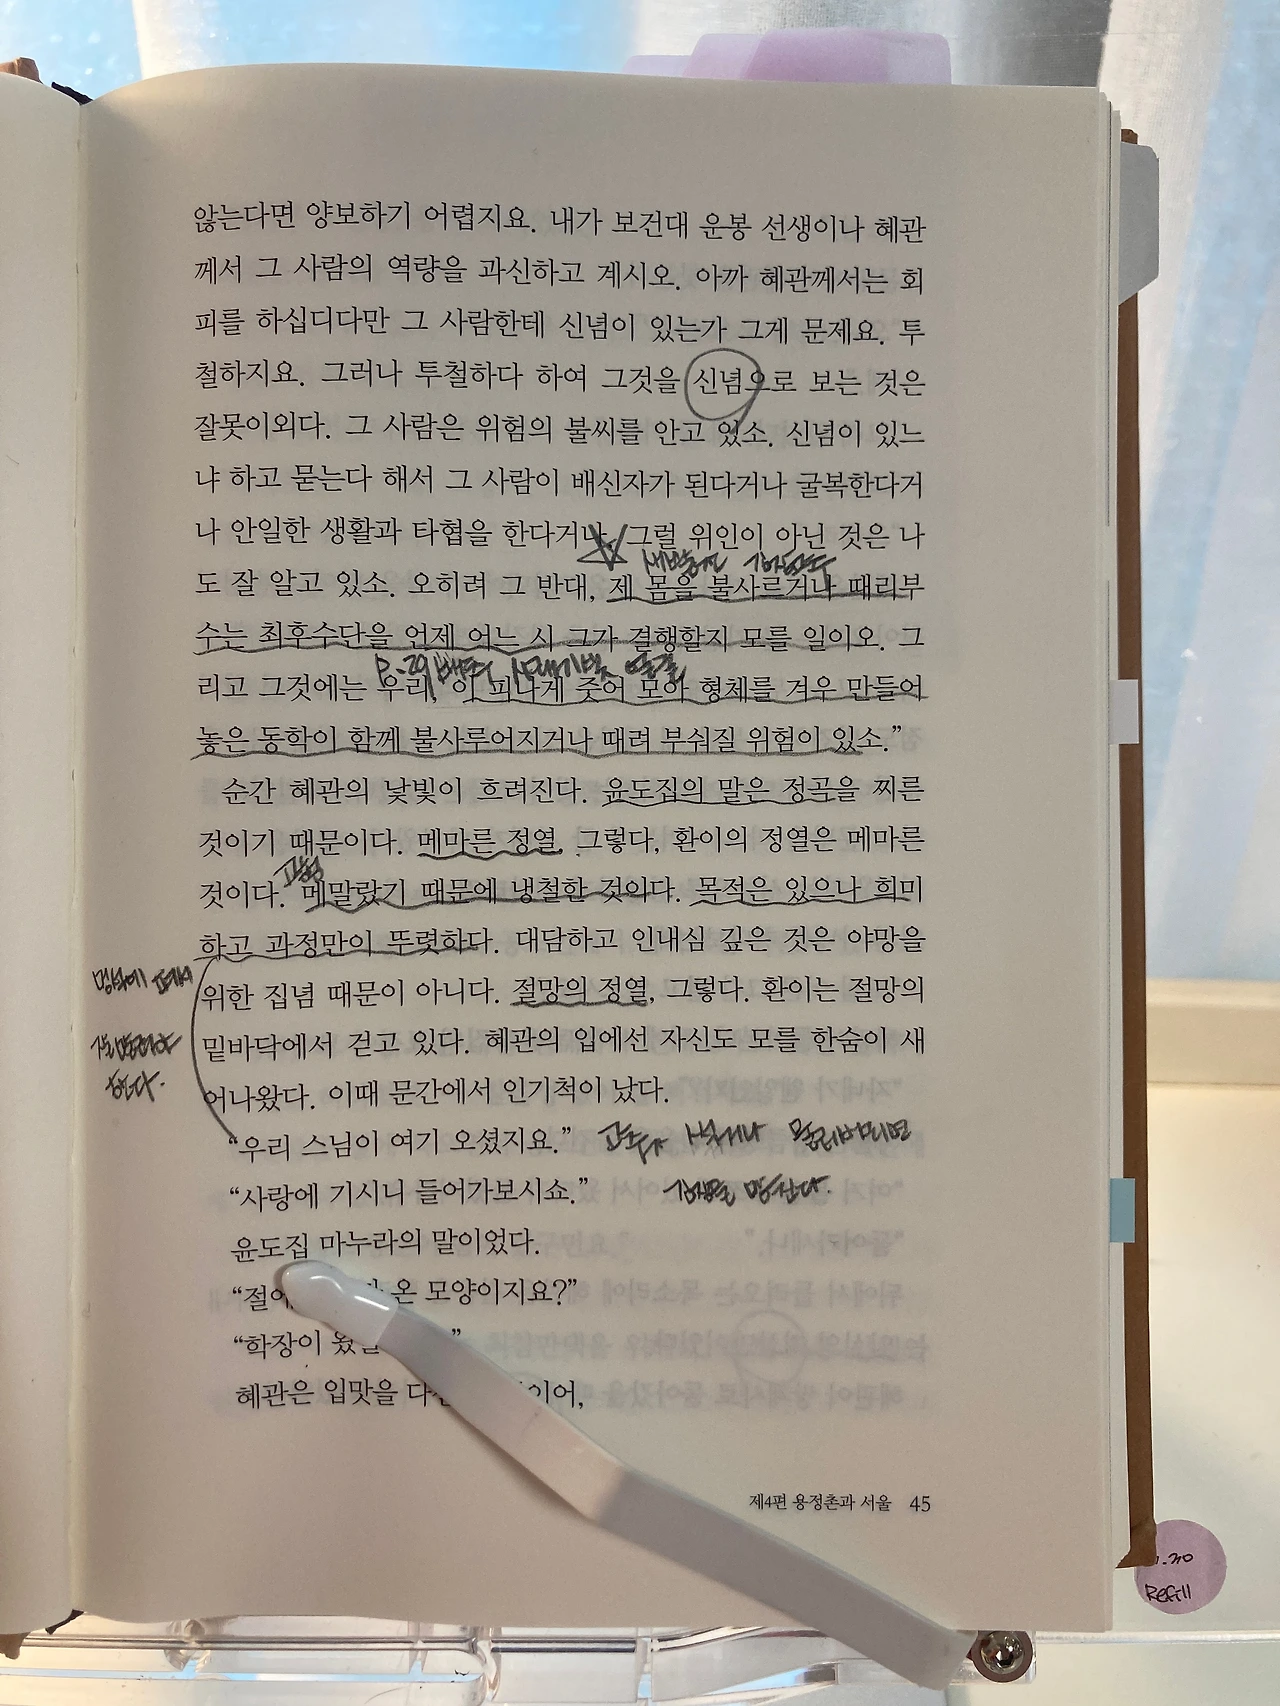 않는다면 양보하기 어렵지요. 내가 보건대 운봉 선생이나 혜관
께서 그 사람의 역량을 과신하고 계시오. 아까 혜관께서는 회
피를 하십디다만 그 사람한테 신념이 있는가 그게 문제요. 투
철하지요. 그러나 투철하다 하여 그것을 신념으로 보는 것은
잘못이외다. 그 사람은 위험의 불씨를 안고 있소. 신념이 있느
냐 하고 묻는다 해서 그 사람이 배신자가 된다거나 굴복한다거
나 안일한 생활과 타협을 한다거나, 그럴 위인이 아닌 것은 나
도 잘 알고 있소. 오히려 그 반대, 제 몸을 불사르거나 때리부
수는 최후수단을 언제 어느 시 그가 결행할지 모를 일이오. 그
리고 그것에는 우리, 이 피나게 줏어 모아 형체를 겨우 만들어
놓은 동학이 함께 불사루어지거나 때려 부숴질 위험이 있소.”
순간 혜관의 낯빛이 흐려진다. 윤도집의 말은 정곡을 찌른
것이기 때문이다. 메마른 정열, 그렇다, 환이의 정열은 메마른
것이다. 메말랐기 때문에 냉철한 것이다. 목적은 있으나 희미
하고 과정만이 뚜렷하다. 대담하고 인내심 깊은 것은 야망을
위한 집념 때문이 아니다. 절망의 정열, 그렇다. 환이는 절망의
밑바닥에서 걷고 있다. 혜관의 입에선 자신도 모를 한숨이 새
어나왔다. 이때 문간에서 인기척이 났다.
한다.
“우리 스님이 여기 오셨지요.”
“사랑에 기시니 들어가보시쇼.”
윤도집 마누라의 말이었다.
“절에 온 모양이지요?”
“학장이 왔 ”
혜관은 입맛을 이어,
제4편 용정촌과 서울 45
Refill